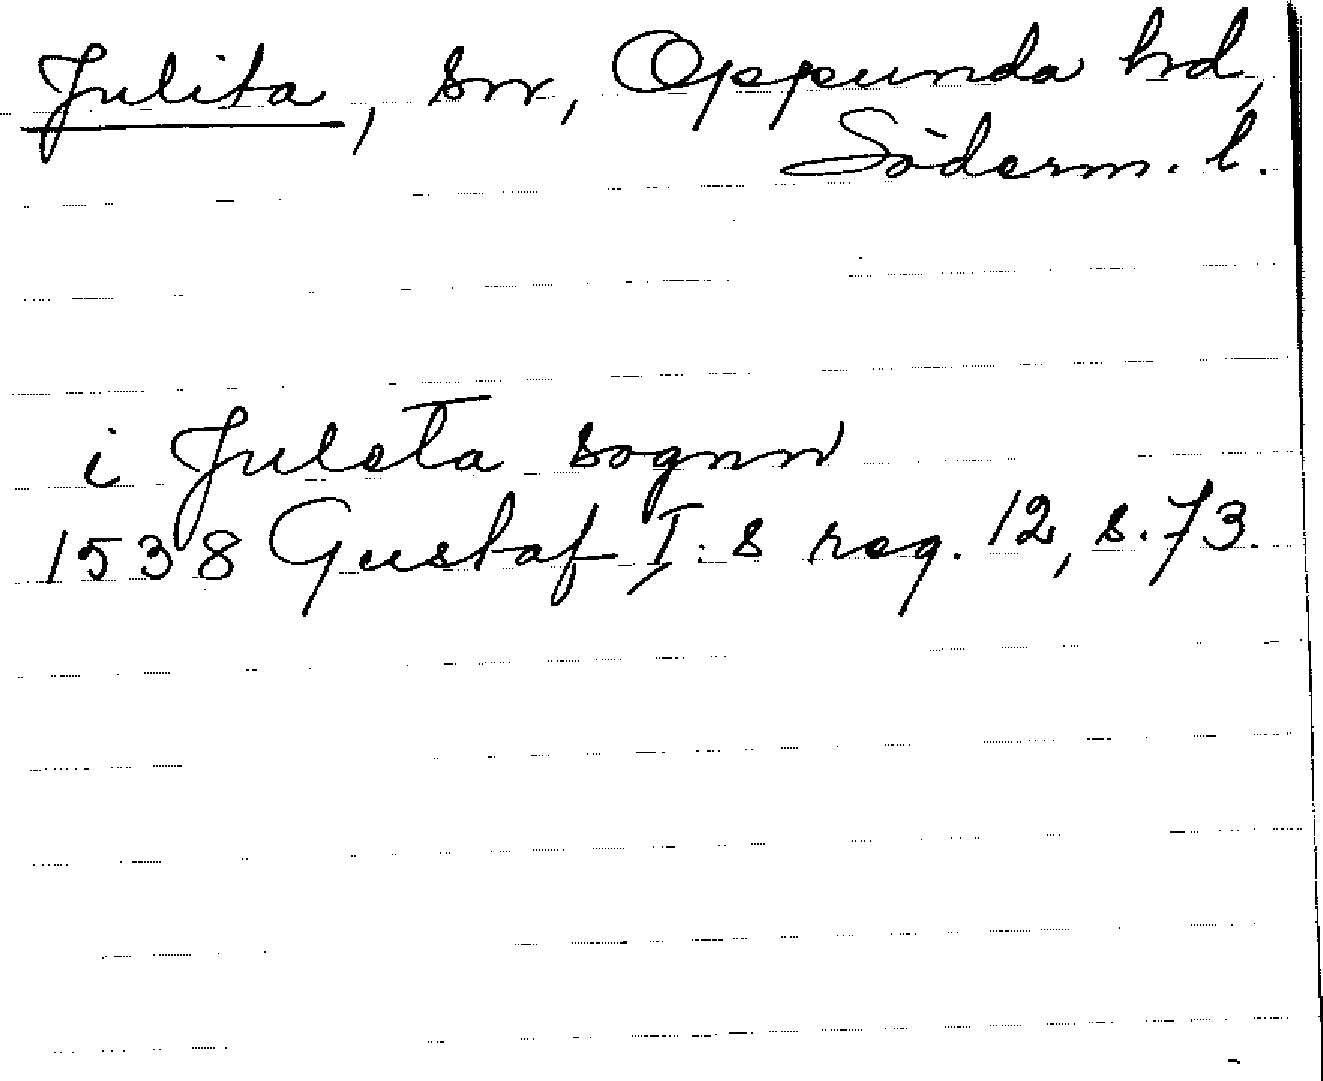 Julita, sn, Oppunda hd,
Söderm. l.
i Juleta sognn
1538 Gustaf I:s reg. 12, s. 73.